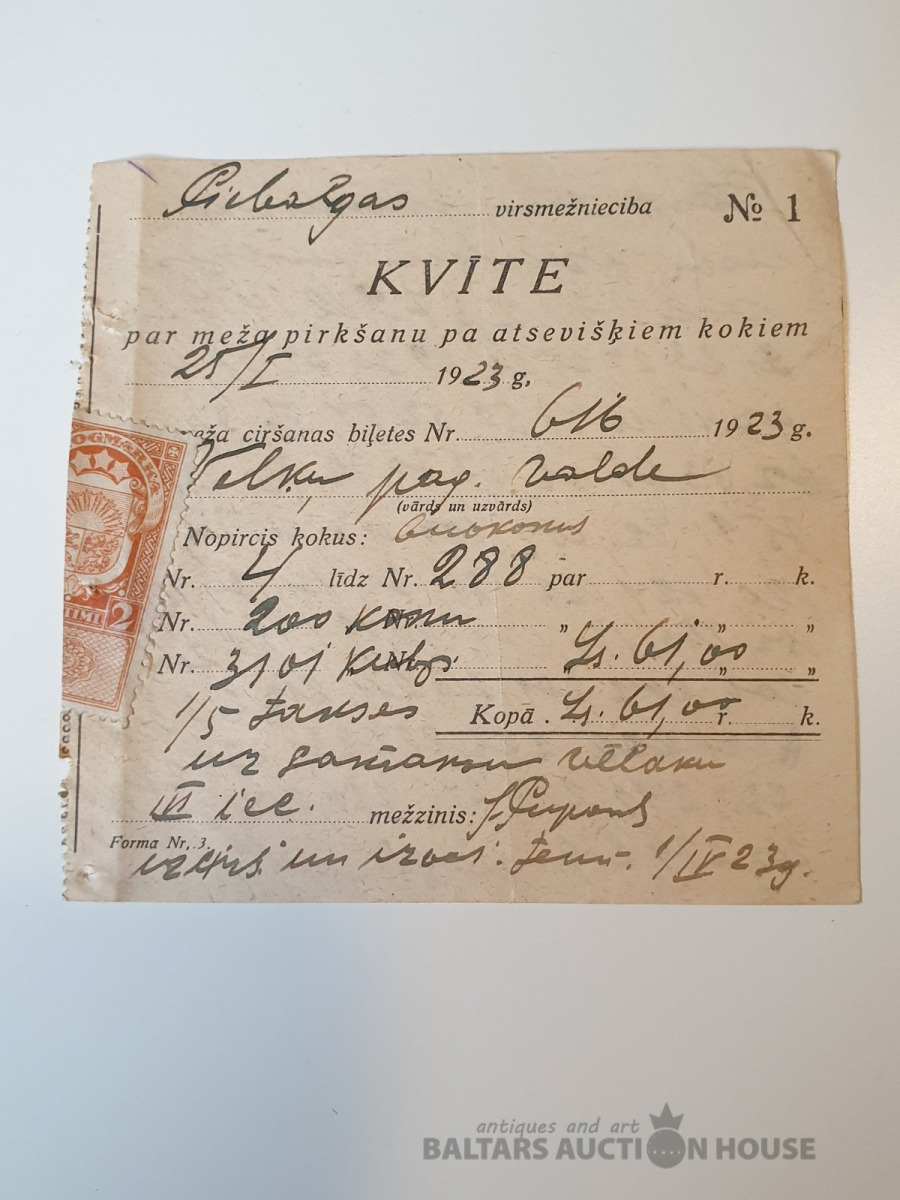 Piebalgas virsmežniecība № 1
KVĪTE
par meža pirkšanu pa atsevišķiem kokiem
25/I 1923 g.
meža ciršanas biļetes Nr. 616 1923 g.
Velķu pag. valde
(vārds un uzvārds)
Nopircis kokus:
Nr. 4 līdz Nr. 288 par r. k.
Nr. 200 Nr. " " "
Nr. 3101 Nr. Ls. 61,00 " "
1/5 takses Kopā Ls. 61,00 r. k.
uz vēlāku
III iec. mežzinis:
Forma Nr. 3.
un 1/IV 23g.
OGMARKA
TIMI 2
antiques and art
BALTARS AUCTION HOUSE